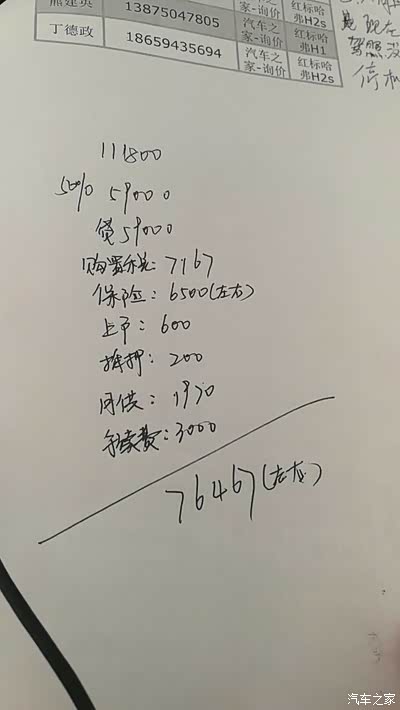 熊建英 13875047805 汽车之家-询价 红标哈弗H2s
丁德政 18659435694 汽车之家-询价 红标哈弗H1
汽车之家-询价 红标哈弗H2s
现在
驾照没
停机
111800
50% 59000
贷59000
购置税: 7167
保险: 6500(左右)
上户: 600
抵押: 200
月供: 1970
手续费: 3000
76467(左右)
汽车之家